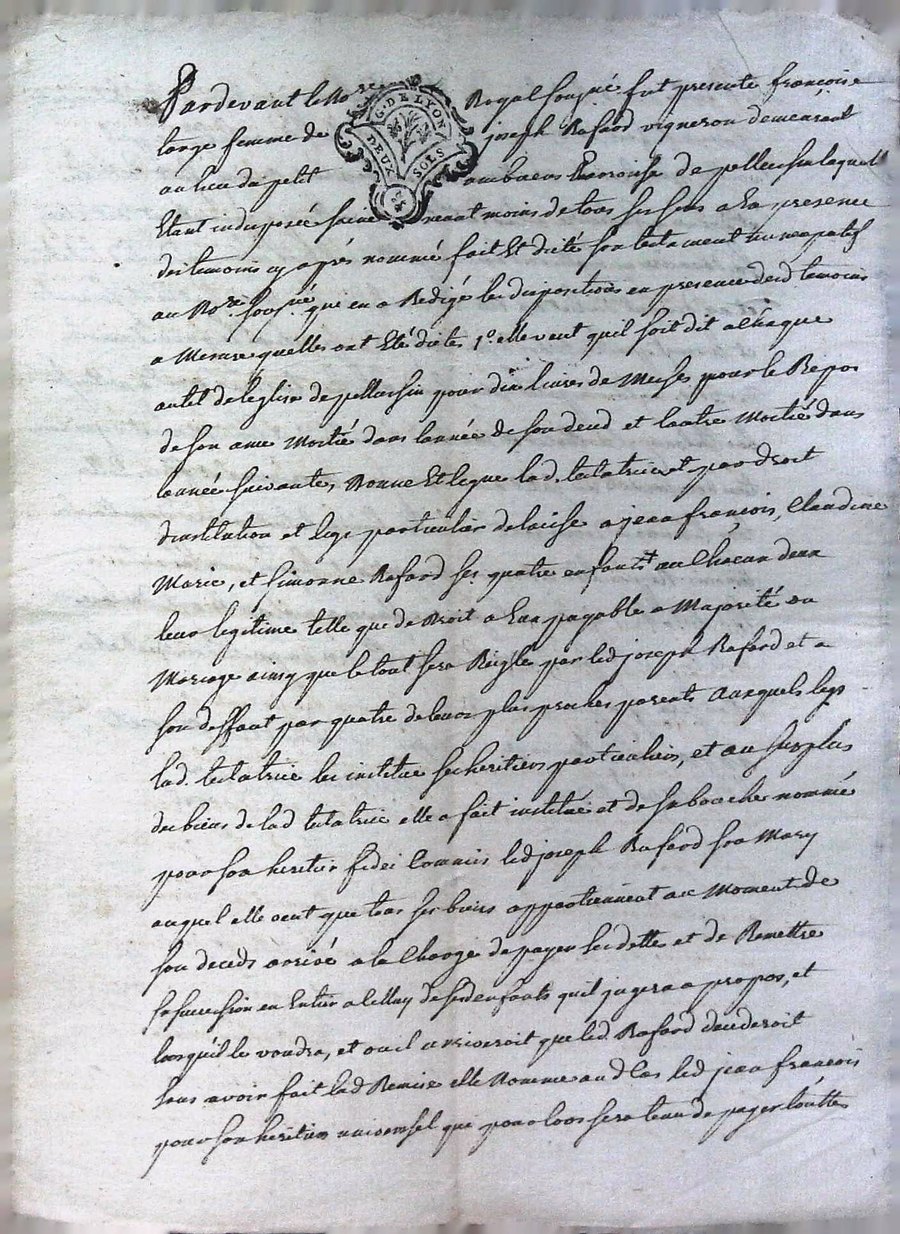 Pardevant le No.re Royal soussigné fut presente françoise
G. DE LYON
DEUX SOLS
large femme de joseph Rafard vigneron demeurant
au lieu du petit embuens Parroisse de pellussin laquelle
Etant indisposée saine neant moins de tous ses sens a En presence
des temoins cy après nommé fait Et dicté son testament nuncupatif
au No.re sous.né qui en a Redigé les dispositions en presence desd temoins
a Mesure quelles ont Eté dictés 1.° elle veut quil soit dit a chaque
autel de leglise de pellussin pour dix livres de Messes pour le Repos
de son ame Moitié dans lannée de son deced et lautre Moitié dans
lannée suivante, Donne Et legue lad. testatrice et par droit
dinstitution et legs particulier delaisse a jean françois, Claudine
Marie, et Simonne Rafard ses quatre enfants et au Chacun deux
leur legitime telle que de Droit a Eux payable a Majorité ou
Mariage ainsy que le tout sera Reiglé par led joseph Rafard et a
son deffaut par quatre de leurs plus proches parents Auxquels legs
lad. testatrice les institue ses heritiers particuliers, et au surplus
des biens de lad testatrice elle a fait institué et de sa bouche nommé
pour son heritier fidei Commis led joseph Rafard son Mary
auquel elle veut que tous ses biens appartiennent au Moment de
son deceds arrivé a la Charge de payer ses dettes et de Remettre
sa succession en Entier a celluy de sesd enfants quil jugera a propos, et
lorsquil le voudra, et ou il arriveroit que led. Rafard decederoit
sans avoir fait lad Remise elle Nomme aud Cas led jean francois
pour son heritier universel qui pour lors sera tenu de payer touttes